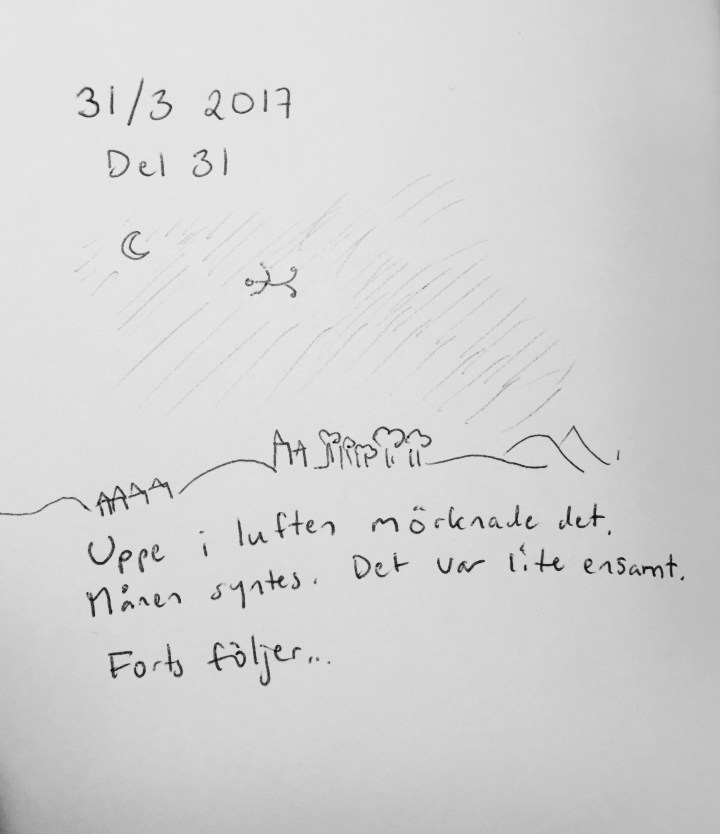 31/3 2017
Del 31
Uppe i luften mörknade det.
Månen syntes. Det var lite ensamt.
Forts följer...